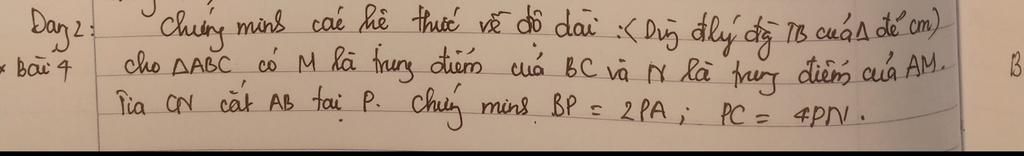 Dạng 2: Chứng minh các hệ thức về độ dài :(Dùg đlý đg TB cuả Δ để cm)
* Bài 4 cho ΔABC có M là trung điểm cuả BC và N là trung điểm cuả AM. B
Tia CN cắt AB tại P. Chứng minh BP = 2PA ; PC = 4PN.